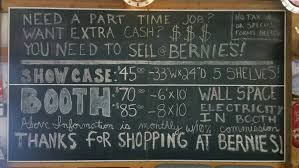 NEED A PART TIME JOB?
WANT EXTRA CASH? $ $ $
YOU NEED TO SELL @ BERNIES!
NO TAX ID
OR SPECIAL
FORMS NEEDED
SHOWCASE: $45⁰⁰ -33"W X 34"D 5 SHELVES!
BOOTH $70⁰⁰ -6'X10' WALL SPACE
$85⁰⁰ -8'X10' ELECTRICITY
IN BOOTH
Above Information is monthly w/10% commission
THANKS FOR SHOPPING AT BERNIES!